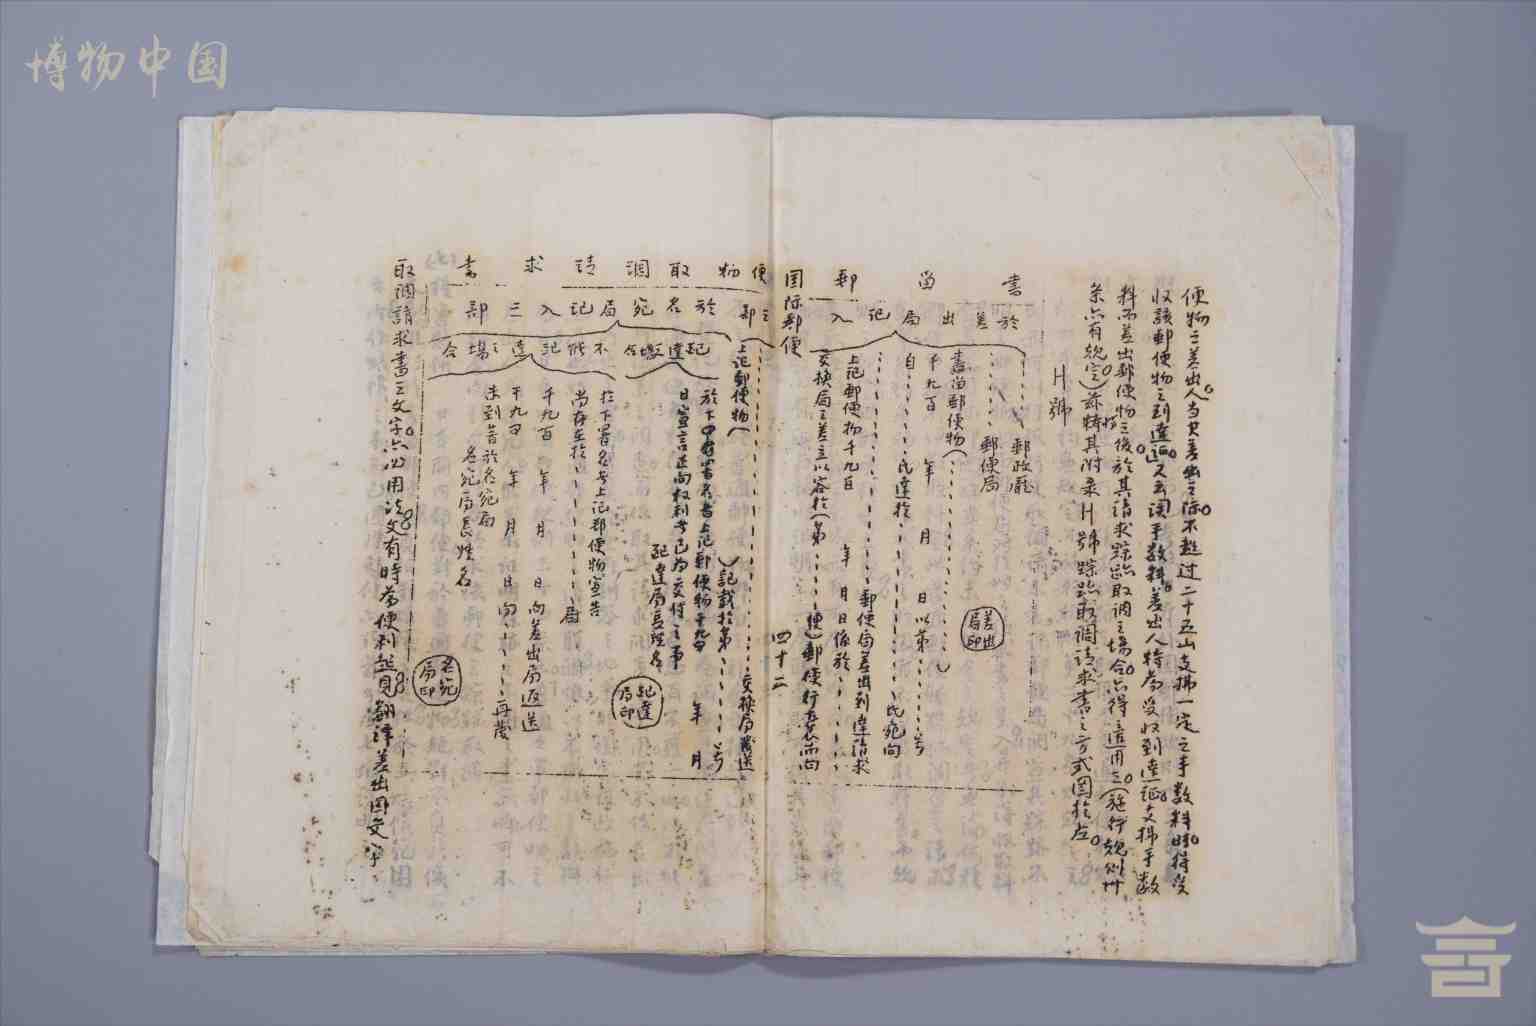 博物中国
便物之差出人当其差出之际不超过二十五山支拂一定之手数料时得受
收該郵便物之到達証又云調手数料差出人特為受收到達証支拂手数
料不差出郵便物之後於其請求踪跡取調之場合亦得適用之(施行規則卅
条亦有規定)茲特其附录H號踪跡取調請求書之方式図於左
H號
書留郵
便物取調請求書
於差出局記入
之部
於名宛局記入之部
郵政廳
郵便局
書留郵便物(
千九百 年 月 日以第 号
自 氏達於 氏宛向
郵便局差出到達請求
上記郵便物千九百 年 月 日係於
交換局之差立以容於(第 便)郵便行嚢而向
差出局印
国际郵便
四十二
交換局發送
上記郵便物( )記載於第 号
配達場合
於下中有署名者上記郵便物千九百 年 月
日宣言正向权利者已為交付之事
配達局長姓名
配達局印
不能配達之場合
於下署名者上記郵便物宣告
尚存在於 局
千九百 年 月 日向差出局返送
千九百 年 月 日向 再發
未到着於名宛局
名宛局長姓名
名宛局印
取調請求書之文字亦必用法文有時為便利起見翻譯差出国文字